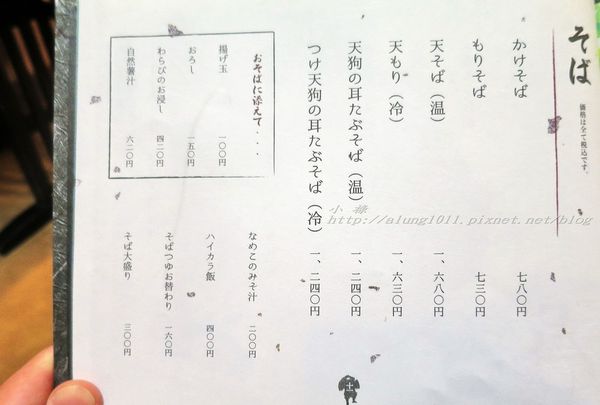 そば
価格は全て税込です。
かけそば 七八〇円
もりそば 七三〇円
天そば（温） 一、六八〇円
天もり（冷） 一、六三〇円
天狗の耳たぶそば（温） 一、二四〇円
つけ天狗の耳たぶそば（冷） 一、二四〇円
おそばに添えて・・・
揚げ玉 一〇〇円
おろし 一五〇円
わらびのお浸し 四二〇円
自然薯汁 六二〇円
なめこのみそ汁 二〇〇円
ハイカラ飯 四〇〇円
そばつゆお替わり 一六〇円
そば大盛り 三〇〇円
http://alung1011.pixnet.net/blog